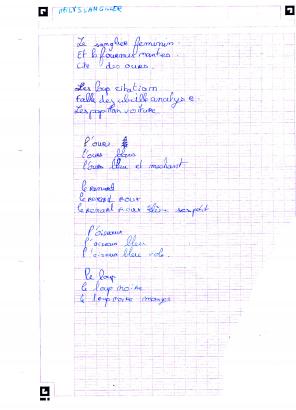 Le sanglier feminin.
Et la fourmis mantes.
Cite des ours.
Les loup citation
Fable des abeille analyse.
Les papillon voiture.
l'ours
l'ours bleu
l'ours bleu et mechant
le renard
le renard roux
le renard roux serpent
l'oiseau
l'oiseau bleu
l'oiseau bleu vole.
Le loup
le loup noire
le loup noire manger